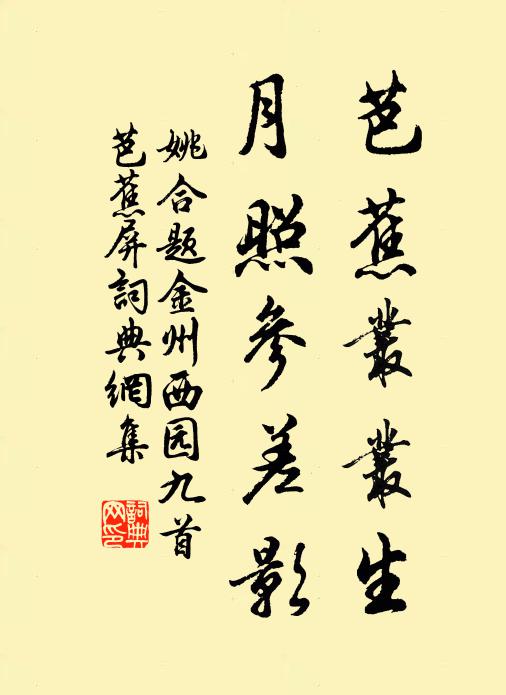 芭蕉叢叢生
月照參差影
姚合题金州西园九首
芭蕉屏詞典網集
詞典网印